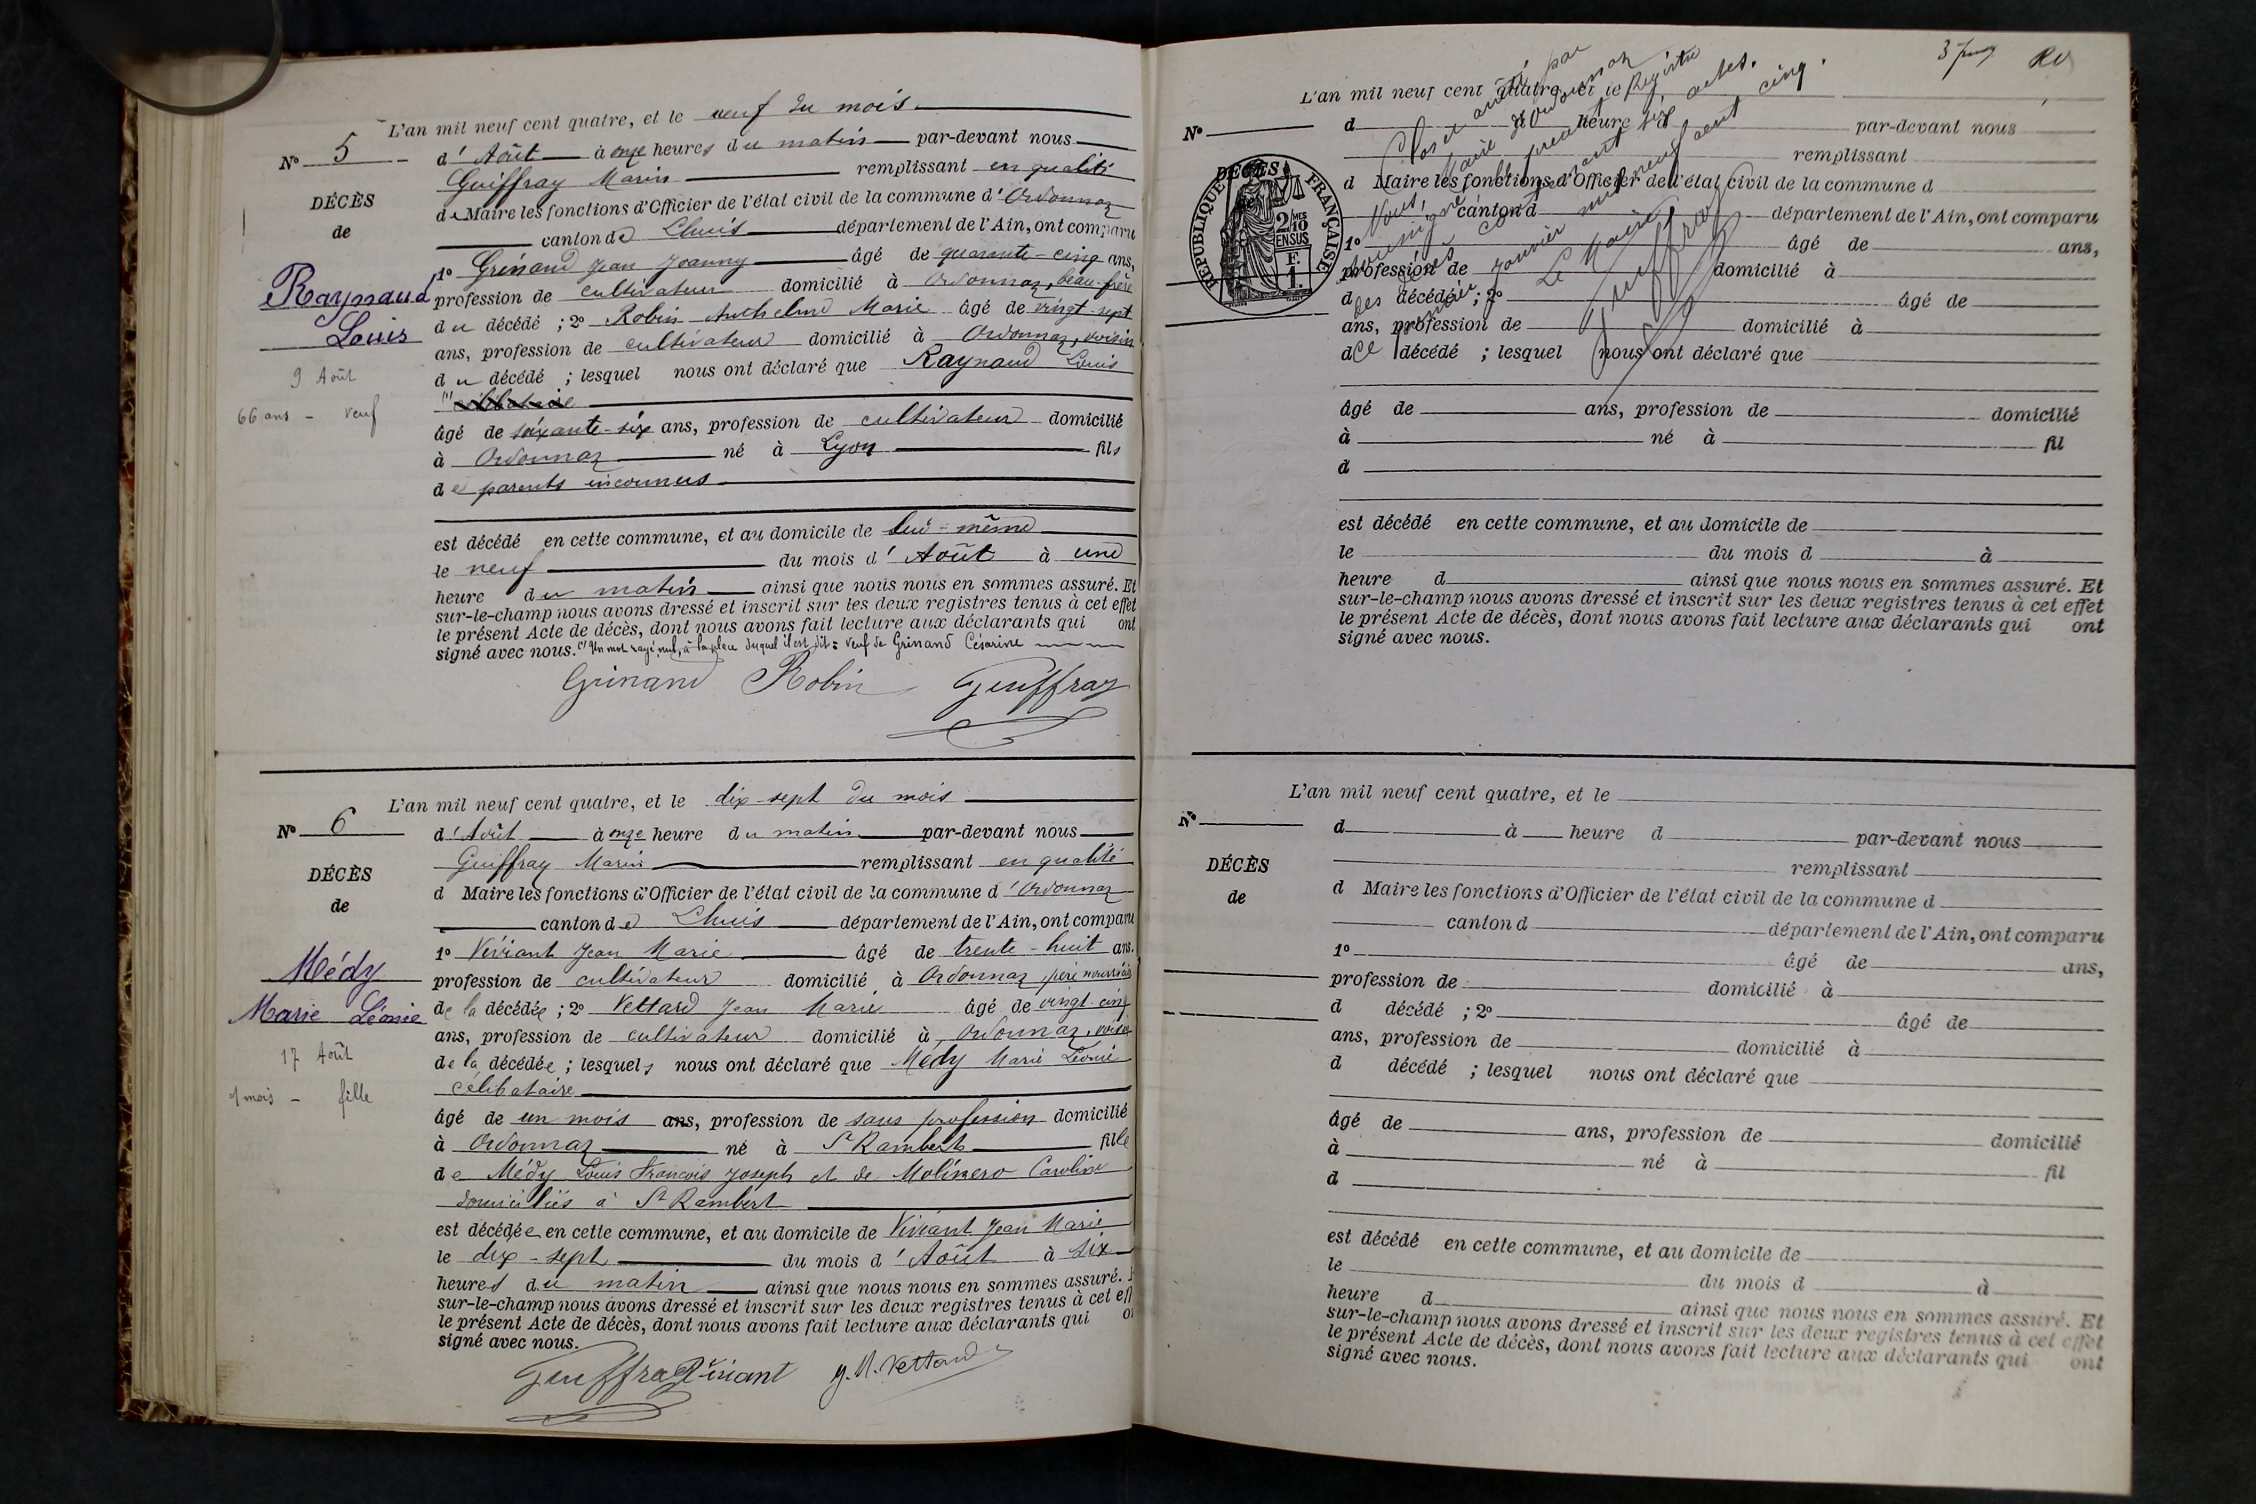 L'an mil neuf cent quatre, et le neuf du mois
N° 5
d'Août à onze heures du matin par-devant nous
Guiffray Marin remplissant en qualité
DÉCÈS
de
de Maire les fonctions d'Officier de l'état civil de la commune d'Ordonnaz
canton de Lhuis département de l'Ain, ont comparu
1° Grinand Jean Joanny âgé de quarante-cinq ans,
Raynaud
Louis
profession de cultivateur domicilié à Ordonnaz, beau-frère
du décédé ; 2° Robin Anthelme Marie âgé de vingt-sept
ans, profession de cultivateur domicilié à Ordonnaz, voisin
9 Août
du décédé ; lesquel nous ont déclaré que Raynaud Louis
(1) célibataire
66 ans - Veuf
âgé de soixante-six ans, profession de cultivateur domicilié
à Ordonnaz né à Lyon fils
de parents inconnus
est décédé en cette commune, et au domicile de lui-même
le neuf du mois d'Août à une
heure du matin ainsi que nous nous en sommes assuré. Et
sur-le-champ nous avons dressé et inscrit sur les deux registres tenus à cet effet
le présent Acte de décès, dont nous avons fait lecture aux déclarants qui ont
signé avec nous. (1) Un mot rayé nul, à la place duquel il est dit : veuf de Grinand Césarine
Grinand Robin Guiffray
L'an mil neuf cent quatre, et le dix-sept du mois
N° 6
d'Août à onze heure du matin par-devant nous
Guiffray Marin remplissant en qualité
DÉCÈS
de
d Maire les fonctions d'Officier de l'état civil de la commune d'Ordonnaz
canton de Lhuis département de l'Ain, ont comparu
1° Viviant Jean Marie âgé de trente-huit ans.
Médy
Marie Léonie
profession de cultivateur domicilié à Ordonnaz, père nourricier
de la décédée ; 2° Vettard Jean Marie âgé de vingt-cinq
ans, profession de cultivateur domicilié à Ordonnaz, voisin
17 Août
de la décédée ; lesquels nous ont déclaré que Médy Marie Léonie
célibataire
1 mois - fille
âgé de un mois ans, profession de sans profession domicilié
à Ordonnaz né à St Rambert fille
de Médy Louis François Joseph et de Molinero Caroline
domiciliés à St Rambert
est décédée en cette commune, et au domicile de Viviant Jean Marie
le dix-sept du mois d'Août à six
heures du matin ainsi que nous nous en sommes assuré.
sur-le-champ nous avons dressé et inscrit sur les deux registres tenus à cet eff
le présent Acte de décès, dont nous avons fait lecture aux déclarants qui
signé avec nous.
Guiffray Viviant J. M. Vettard
L'an mil neuf cent quatre, et le
N°
d à heure d par-devant nous
remplissant
d Maire les fonctions d'Officier de l'état civil de la commune d
canton d département de l'Ain, ont comparu
1° âgé de ans,
profession de domicilié à
d décédé ; 2° âgé de
ans, profession de domicilié à
d décédé ; lesquel nous ont déclaré que
âgé de ans, profession de domicilié
à né à fil
d
est décédé en cette commune, et au domicile de
le du mois d à
heure d ainsi que nous nous en sommes assuré. Et
sur-le-champ nous avons dressé et inscrit sur les deux registres tenus à cet effet
le présent Acte de décès, dont nous avons fait lecture aux déclarants qui ont
signé avec nous.
DÉCÈS
RÉPUBLIQUE FRANÇAISE
2/10 MES
EN SUS
F.
1.
Clos et arrêté par
Nous, Maire d'Ordonnaz
soussigné, le présent Registre
des décès contenant six actes.
ce premier janvier mil neuf cent cinq.
Le Maire
Guiffray
L'an mil neuf cent quatre, et le
N°
d à heure d par-devant nous
remplissant
DÉCÈS
de
d Maire les fonctions d'Officier de l'état civil de la commune d
canton d département de l'Ain, ont comparu
1° âgé de ans,
profession de domicilié à
d décédé ; 2° âgé de
ans, profession de domicilié à
d décédé ; lesquel nous ont déclaré que
âgé de ans, profession de domicilié
à né à fil
d
est décédé en cette commune, et au domicile de
le du mois d à
heure d ainsi que nous nous en sommes assuré. Et
sur-le-champ nous avons dressé et inscrit sur les deux registres tenus à cet effet
le présent Acte de décès, dont nous avons fait lecture aux déclarants qui ont
signé avec nous.